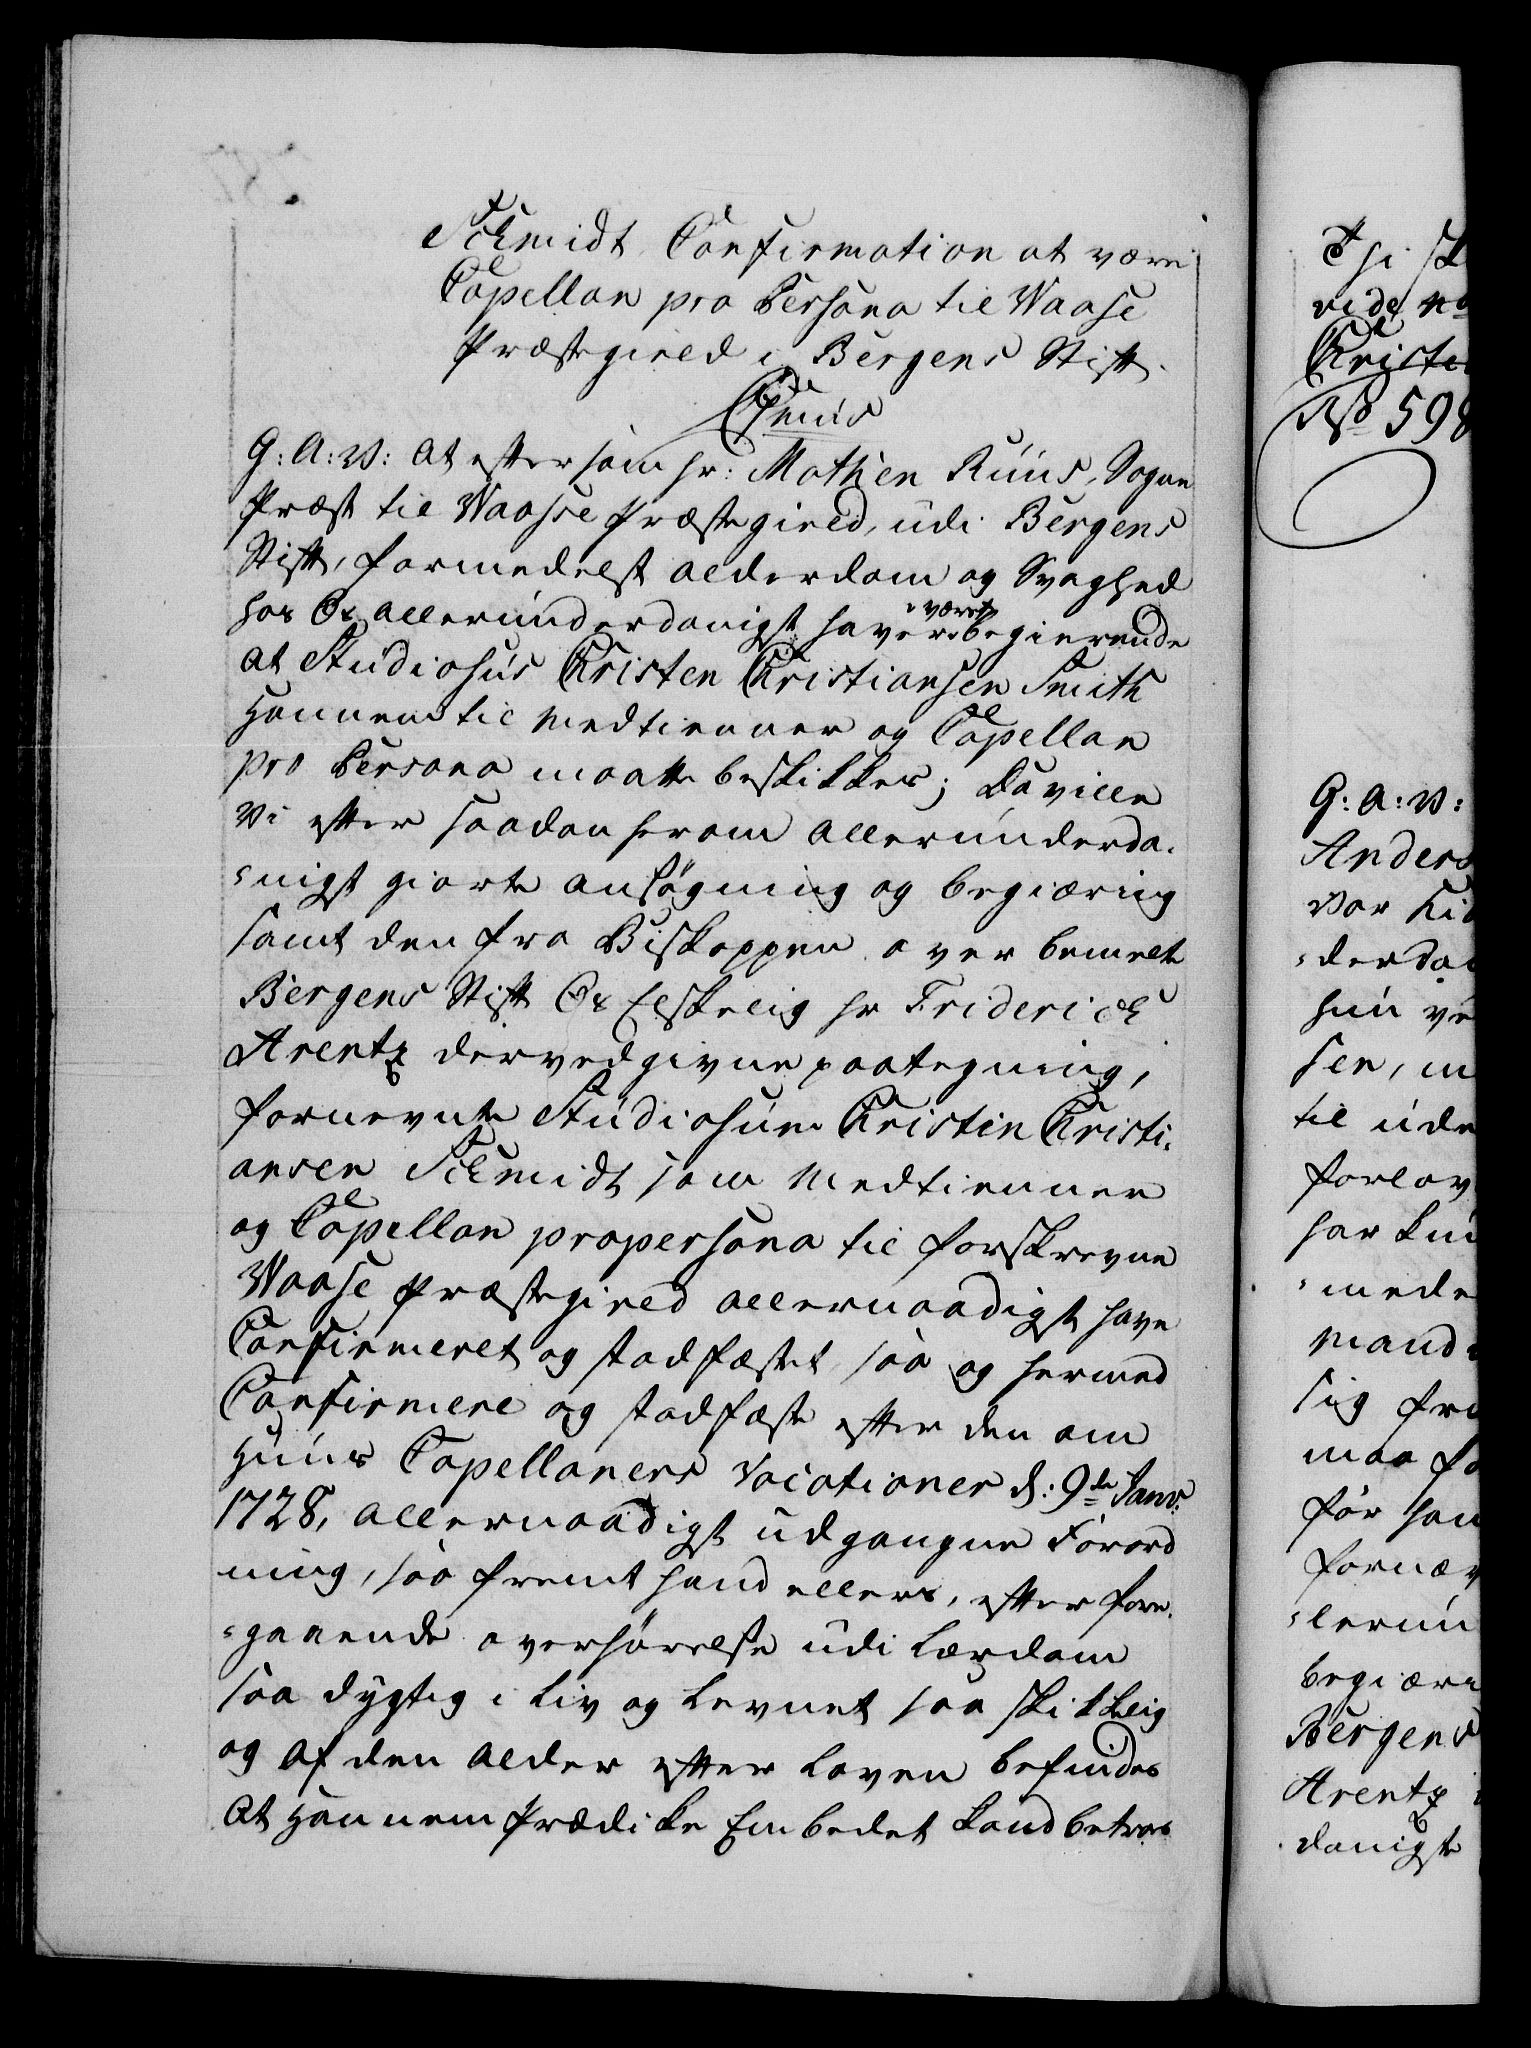 Schmidt Confirmation at være
Capellan pro Persona til Waase
Præstegield i Bergens Stift.
G: A: V: At eftersom hr: Mathien Ruus, Sogne
Præst til Waasse Præstegield, udi Bergens
Stift, formedelst alderdom og Svaghed
hos Os allerunderdanigst haver været begierende
at Studiosus Christen Christiansen Smith
Hannem til Medtienner og Capellan
pro Persona maatte beskikkes; Da ville
Vi efter saadan herom allerunderda-
nigst giorte ansøgning og begiæring
samt den fra Biskoppen over bemelte
Bergens Stift Os Elskelig hr Friderich
Arentz derved givne paategning,
fornevnte Studiosum Christen Christi-
ansen Schmidt som Medtienner
og Capellan pro persona til forskrevne
Waase Præstegield allernaadigst have
Confirmeret og stadfæstet, saa og hermed
Confirmere og stadfæste efter den om
Huus Capellaners Vocationer d: 9de Janv:
1728, allernaadigst udgangne Forord
ning, saa fremt hand ellers, efter fore-
gaaende overhørelse udi Lærdom
saa dygtig i Liv og Levnet saa skikkelig
og af den alder efter Loven befindes
At Hannem Prædike Embedet kand betroes
Thi sk
vide
Christi
No 598
G: A: V:
Anders
vor
derda
hun
sen, m
til ude
forlov
har
mede
Mand
sig fra
maa
før han
fornæv
lerun
begiær
Bergens
Arentz
danigste